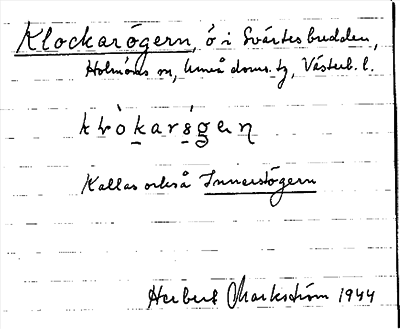 Klockarögern, ö i Svärtesbudden,
Holmöns sn, Umeå doms. tg, Västerb. l.
Kallas också Innerstögern
Herbert Markström 1944